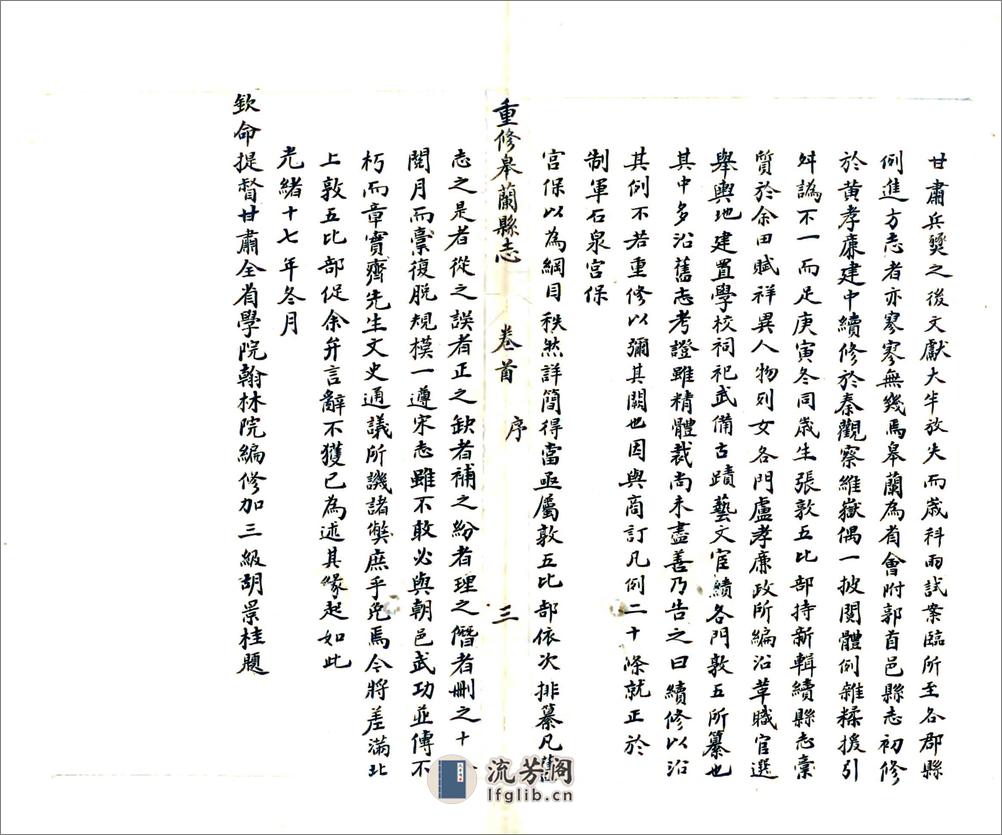 甘肅兵燹之後文獻大半放失而歲科兩試案臨所至各郡縣
例進方志者亦寥寥無幾焉皋蘭為省會附郭首邑縣志初修
於黃孝廉建中續修於秦觀察維嶽偶一披閱體例雜糅援引
舛譌不一而足庚寅冬同歲生張敦五比部持新輯續縣志稾
質於余田賦祥異人物列女各門盧孝廉政所編沿革職官選
舉輿地建置學校祠祀武備古蹟藝文宦績各門敦五所纂也
其中多沿舊志考證雖精體裁尚未盡善乃告之曰續修以沿
其例不若重修以彌其闕也因與商訂凡例二十條就正於
制軍石泉宮保
宮保以為綱目秩然詳簡得當亟屬敦五比部依次排纂凡舊
重修皋蘭縣志 卷首 序 三
志之是者從之誤者正之缺者補之紛者理之僭者刪之十
閱月而稾復脫規模一遵宋志雖不敢必與朝邑武功並傳不
朽而章實齋先生文史通議所譏諸弊庶乎免焉今將差滿北
上敦五比部促余弁言辭不獲已為述其緣起如此
光緒十七年冬月
欽命提督甘肅全省學院翰林院編修加三級胡景桂題
流芳阁
lfglib.cn